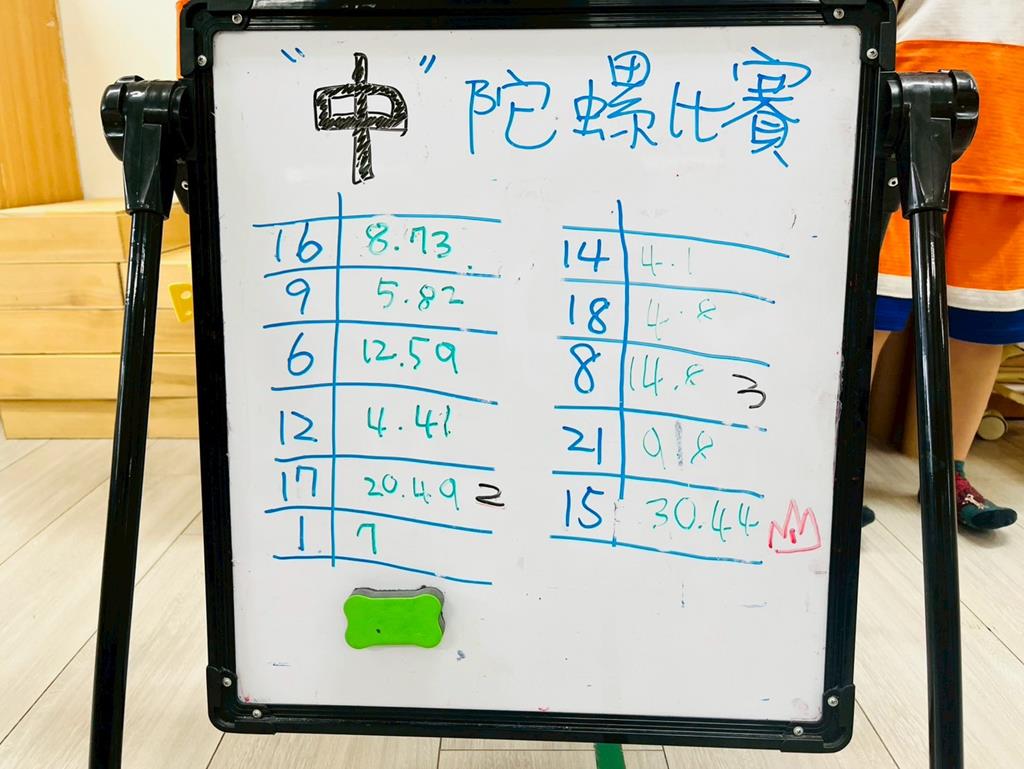 "中" 陀螺比賽
16 8.73
9 5.82
6 12.59
12 4.41
17 20.49 2
1 7
14 4.1
18 4.8
8 14.8 3
21 9 8
15 30.44